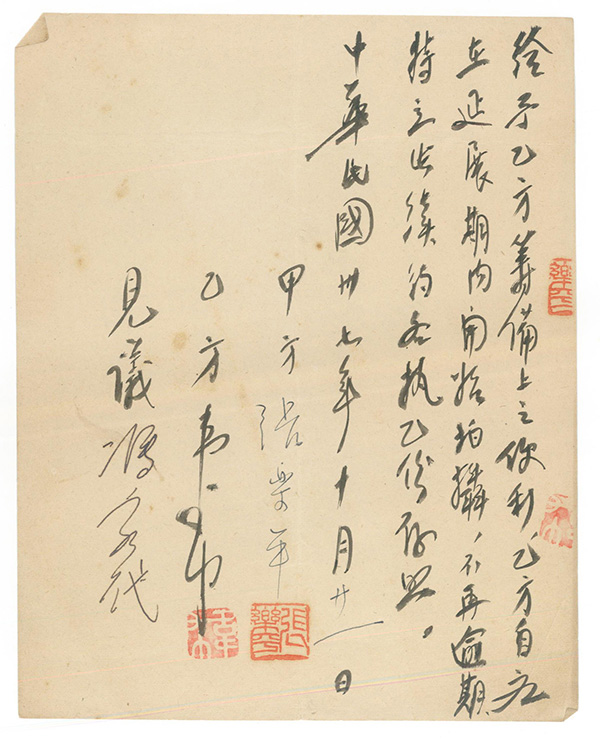 給予乙方籌備上之便利,乙方自應
在延展期內開始拍攝,不再逾期。
特立此續約各執乙份存照。
中華民國卅七年十月廿一日
甲方 張樂平
乙方 韋布
見議 馮亦代